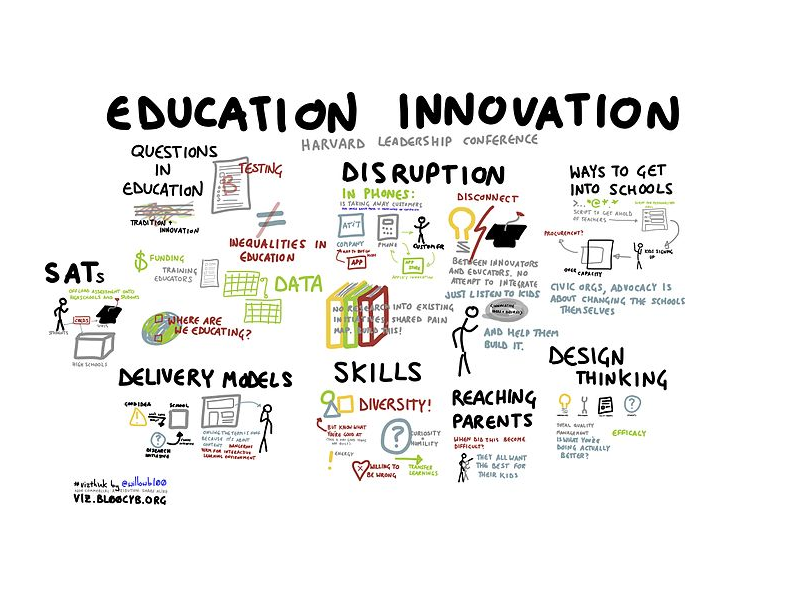 EDUCATION INNOVATION
HARVARD LEADERSHIP CONFERENCE
QUESTIONS
IN
EDUCATION
TRADITION +
INNOVATION
B
TESTING
≠
INEQUALITIES IN
EDUCATION
$ FUNDING
TRAINING
EDUCATORS
DATA
WHERE ARE
WE EDUCATING?
SATs
STUDENTS
HIGH SCHOOLS
DISRUPTION
IN PHONES:
IS TAKING AWAY CUSTOMERS
AT&T
COMPANY
PHONE
CUSTOMER
APP
APP
STORE
DISCONNECT
BETWEEN INNOVATORS
AND EDUCATORS. NO
ATTEMPT TO INTEGRATE
JUST LISTEN TO KIDS
AND HELP THEM
BUILD IT.
NO RESEARCH INTO EXISTING
INITIATIVES, SHARED PAIN
MAP. BUILD THIS!
WAYS TO GET
INTO SCHOOLS
SCRIPT TO GET AHOLD
OF TEACHERS
PROCUREMENT?
OVER CAPACITY
KIDS SIGNING
UP
CIVIC ORGS, ADVOCACY IS
ABOUT CHANGING THE SCHOOLS
THEMSELVES
DELIVERY MODELS
GOOD IDEA
SCHOOL
RESEARCH
INITIATIVE
SKILLS
DIVERSITY!
BUT KNOW WHAT
YOU'RE GOOD AT
?
CURIOSITY
+
HUMILITY
! ENERGY
WILLING TO
BE WRONG
TRANSFER
LEARNINGS
REACHING
PARENTS
WHEN DID THIS BECOME
DIFFICULT?
THEY ALL WANT
THE BEST FOR
THEIR KIDS
DESIGN
THINKING
TOTAL QUALITY
MANAGEMENT
IS WHAT YOU'RE
DOING ACTUALLY
BETTER?
EFFICACY
#vizthink by @willowbl00
VIZ.BL00CYB.ORG